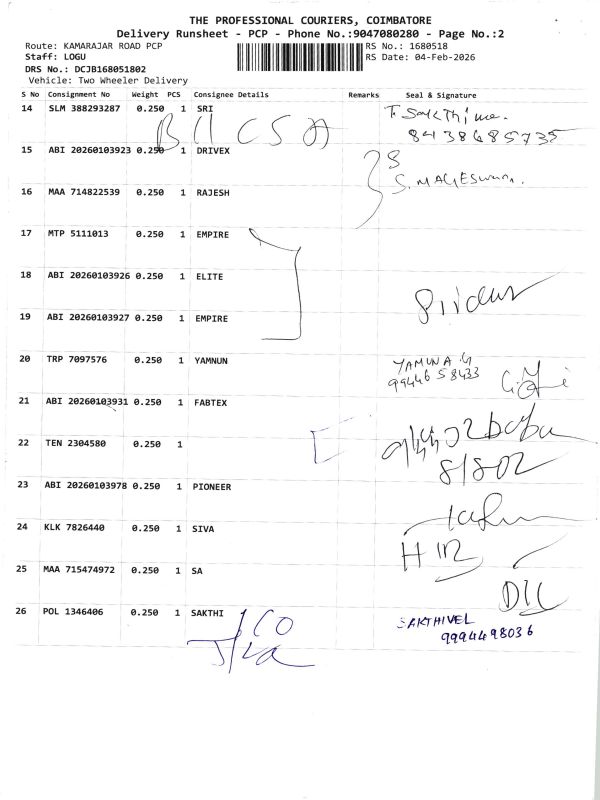 THE PROFESSIONAL COURIERS, COIMBATORE
Delivery Runsheet - PCP - Phone No.:9047080280 - Page No.:2
Route: KAMARAJAR ROAD PCP
RS No.: 1680518
Staff: LOGU
RS Date: 04-Feb-2026
DRS No.: DCJB168051802
Vehicle: Two Wheeler Delivery
S No Consignment No Weight PCS Consignee Details Remarks Seal & Signature
14 SLM 388293287 0.250 1 SRI
8438685735
15 ABI 20260103923 0.250 1 DRIVEX
16 MAA 714822539 0.250 1 RAJESH
17 MTP 5111013 0.250 1 EMPIRE
18 ABI 20260103926 0.250 1 ELITE
19 ABI 20260103927 0.250 1 EMPIRE
20 TRP 7097576 0.250 1 YAMNUN YAMUNA.G
99446 58433
21 ABI 20260103931 0.250 1 FABTEX
22 TEN 2304580 0.250 1
23 ABI 20260103978 0.250 1 PIONEER
24 KLK 7826440 0.250 1 SIVA
25 MAA 715474972 0.250 1 SA
26 POL 1346406 0.250 1 SAKTHI SAKTHIVEL
9994498036